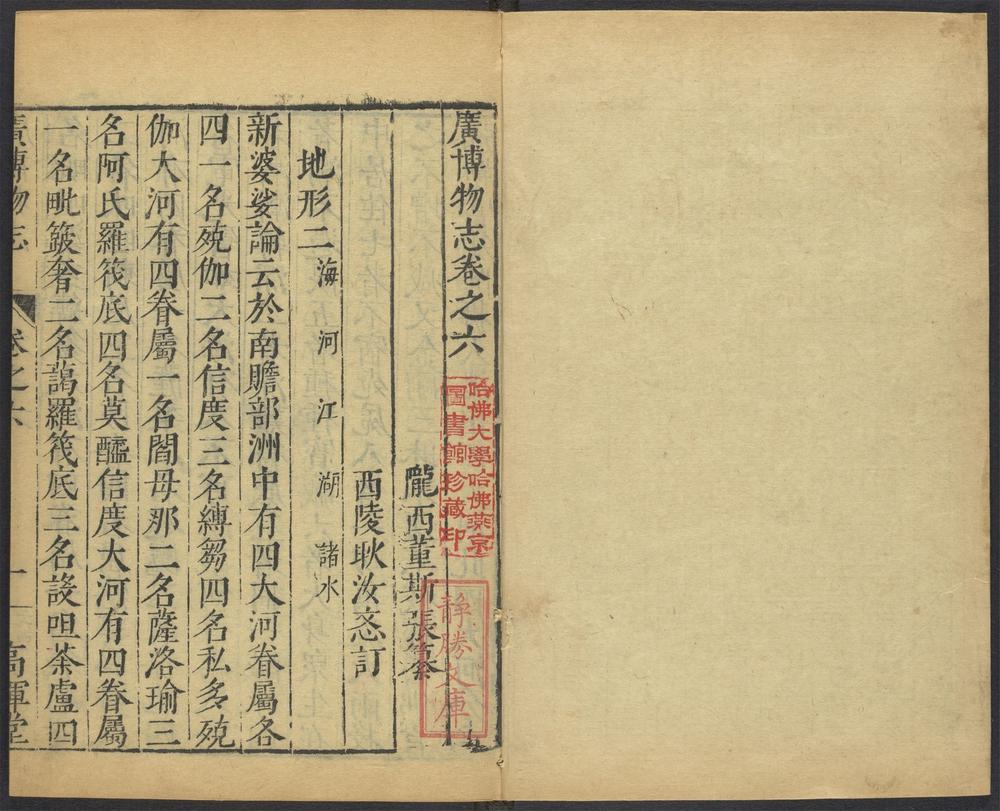 廣博物志卷之六
哈佛大學哈佛燕京
圖書館珍藏印
靜勝文庫
隴西董斯張纂
西陵耿汝忞訂
地形二 海 河 江 湖 諸水
新婆娑論云於南贍部洲中有四大河眷屬各
四一名殑伽二名信度三名縛芻四名私多殑
伽大河有四眷屬一名閻母那二名薩洛瑜三
名阿氏羅筏底四名莫醯信度大河有四眷屬
一名毗簸奢二名藹羅筏底三名設呾荼盧四
廣博物志 卷之六 一 高暉堂